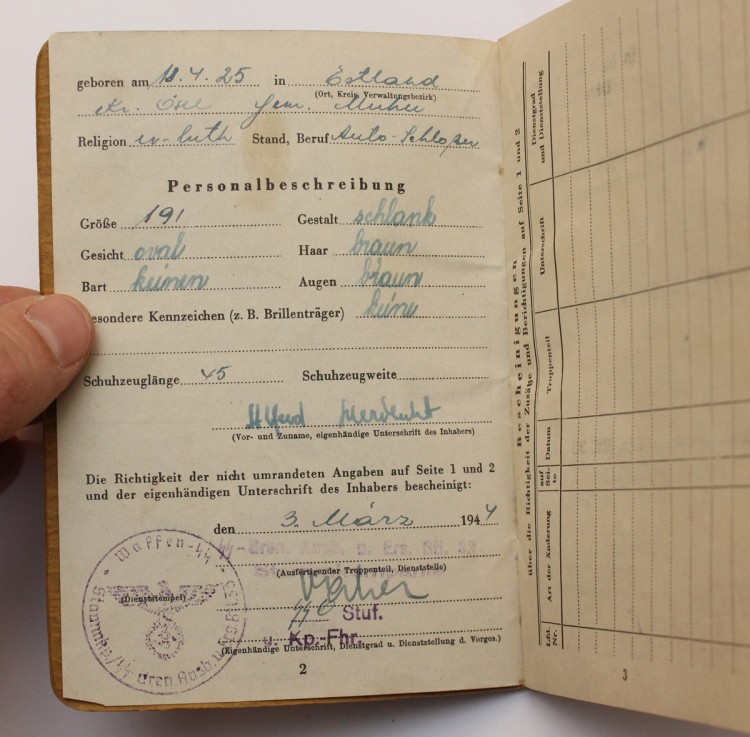 geboren am 11.4.25 in Estland
(Ort, Kreis, Verwaltungsbezirk)
Kr. Ösel Gem. Muhu
Religion ev-luth Stand, Beruf Auto-Schloßer
Personalbeschreibung
Größe 191 Gestalt schlank
Gesicht oval Haar braun
Bart keinen Augen braun
Besondere Kennzeichen (z. B. Brillenträger) keine
Schuhzeuglänge 45 Schuhzeugweite
(Vor- und Zuname, eigenhändige Unterschrift des Inhabers)
Die Richtigkeit der nicht umrandeten Angaben auf Seite 1 und 2
und der eigenhändigen Unterschrift des Inhabers bescheinigt:
den 3. März 1944
SS-Gren. Ausb. u. Ers. Btl. 33
(Ausfertigender Truppenteil, Dienststelle)
Stuf.
u. Kp.-Fhr.
(Eigenhändige Unterschrift, Dienstgrad u. Dienststellung d. Vorges.)
2
Waffen-SS
(Dienststempel)
Bescheinigungen
über die Richtigkeit der Zusätze und Berichtigungen auf Seite 1 und 2
Lfd. Nr.
Art der Änderung
auf Seite
Datum
Truppenteil
Unterschrift
Dienstgrad und Dienststellung
3